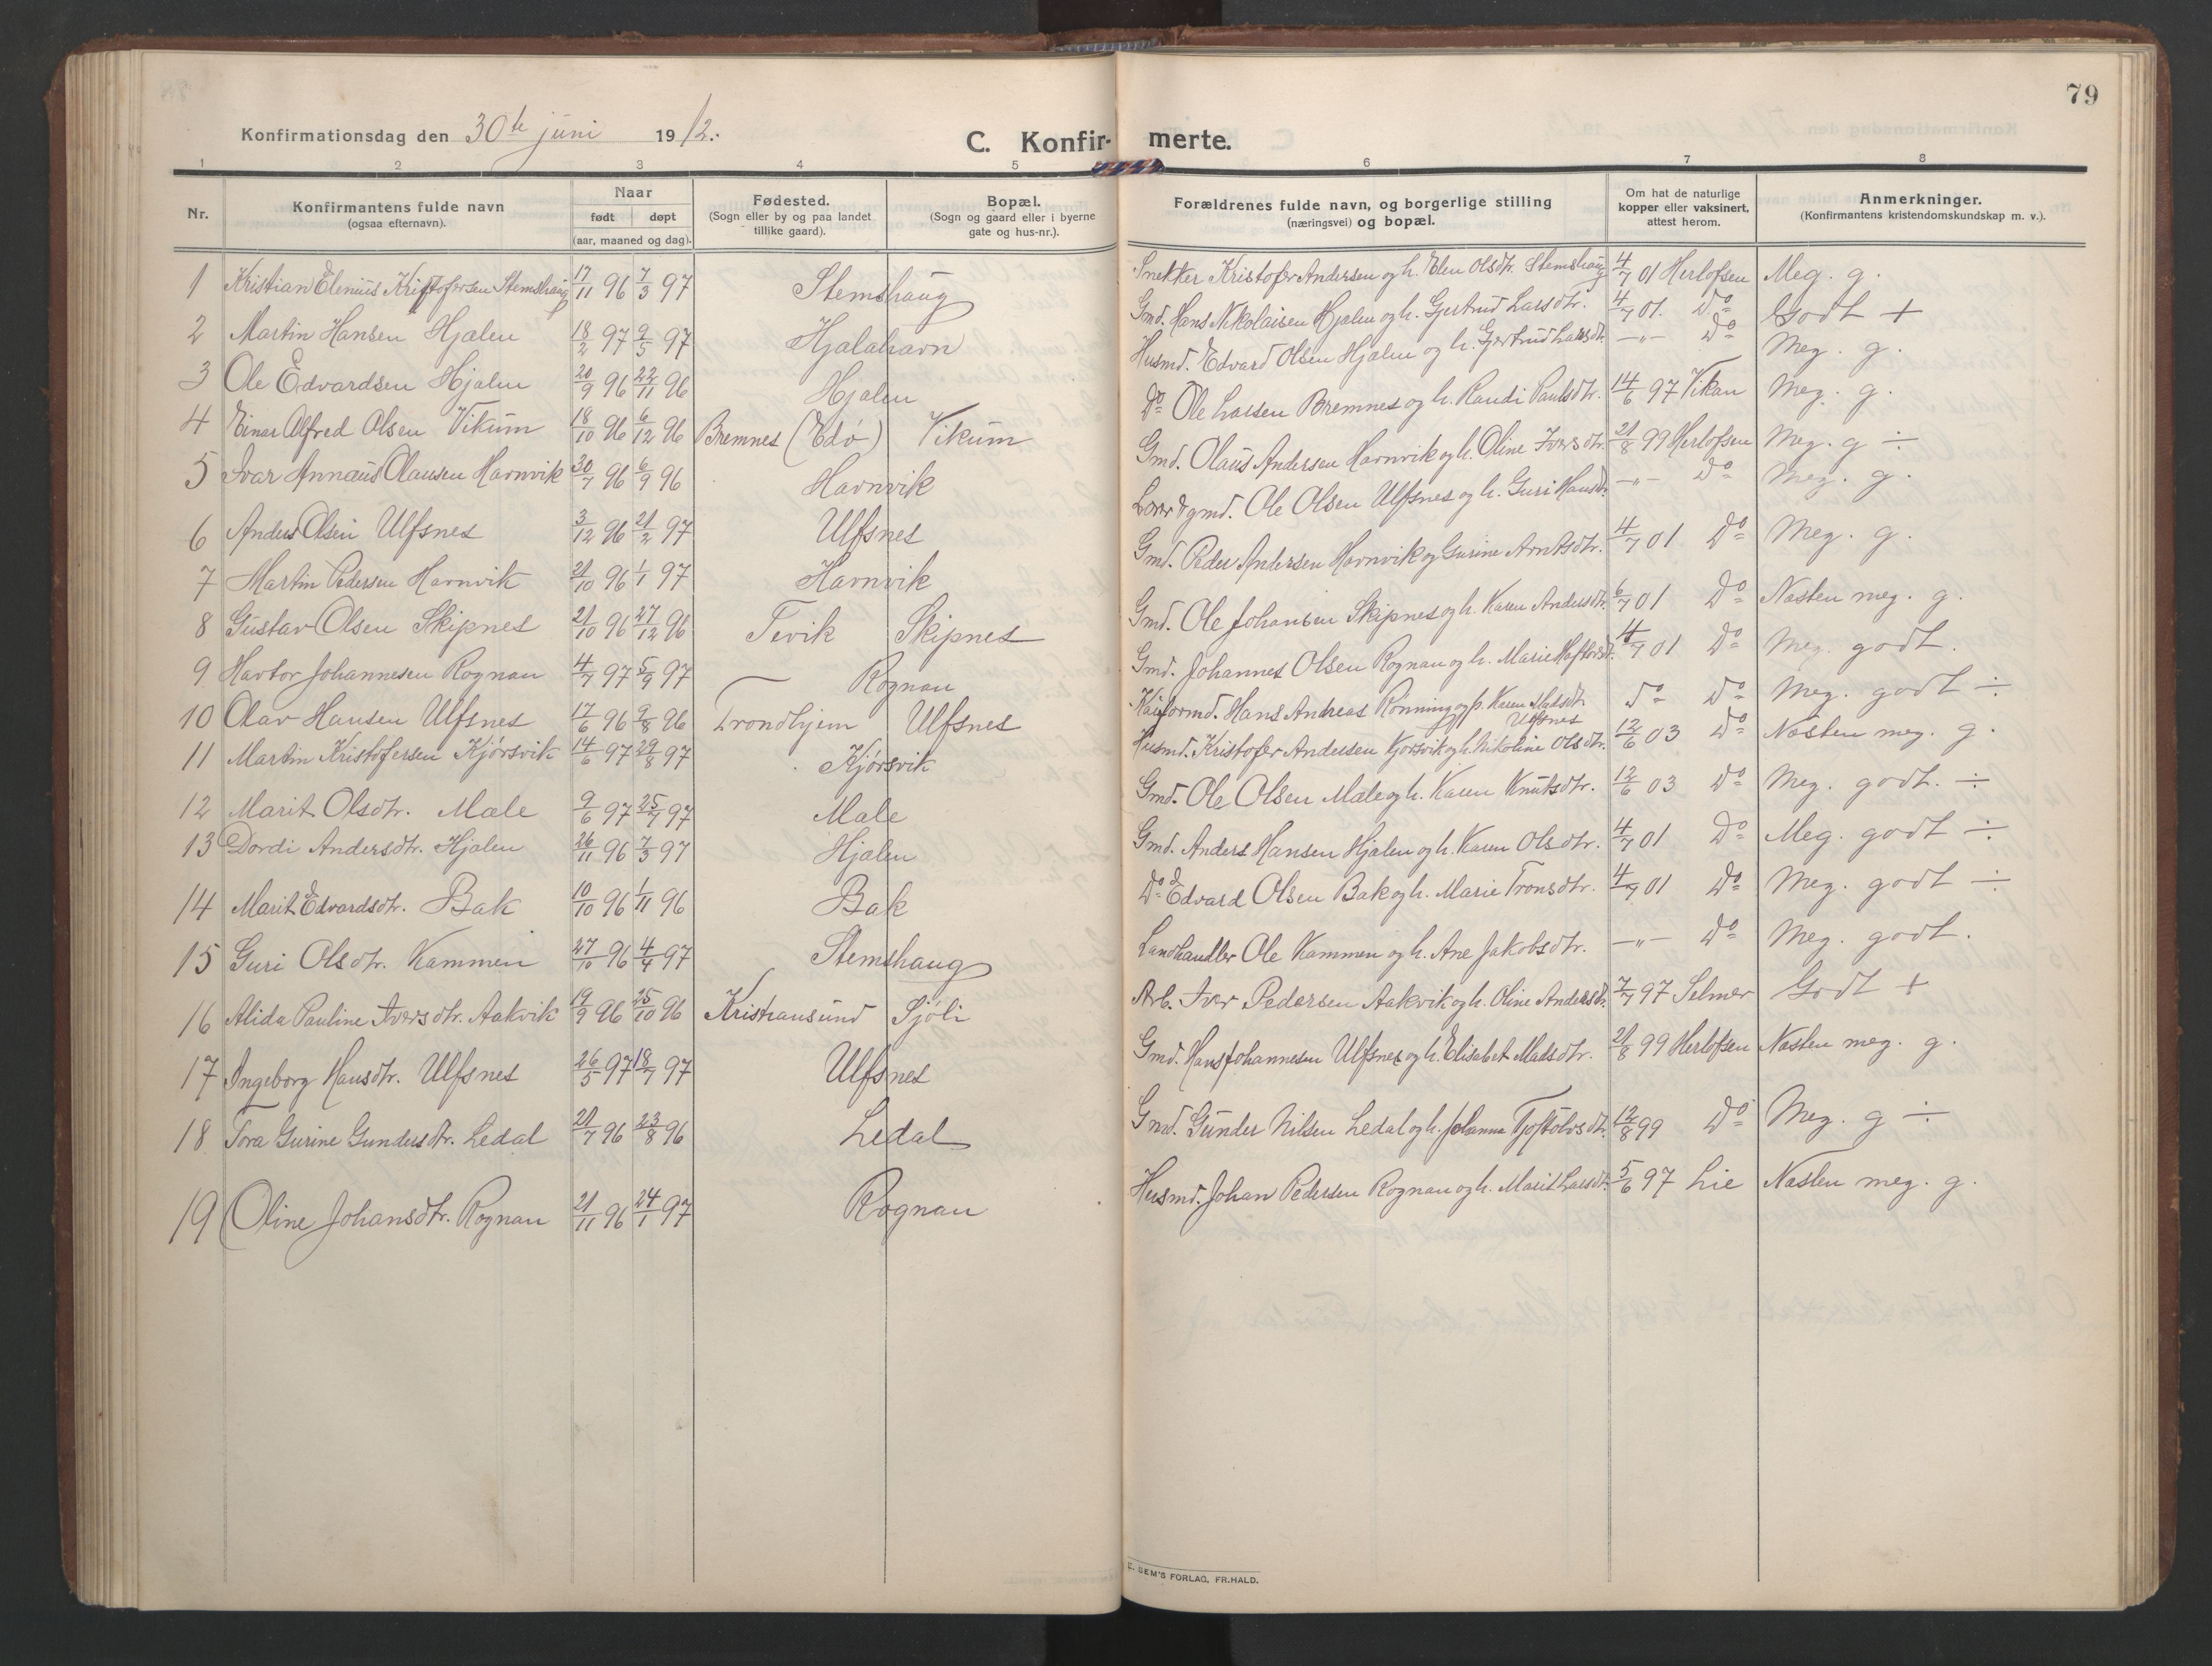 79
Konfirmationsdag den 30te juni 1912.
C. Konfir- merte.
1 2 3 4 5 6 7 8
Nr. Konfirmantens fulde navn (ogsaa efternavn). Naar født døpt (aar, maaned og dag). Fødested. (Sogn eller by og paa landet tillike gaard). Bopæl. (Sogn og gaard eller i byerne gate og hus-nr.). Forældrenes fulde navn, og borgerlige stilling (næringsvei) og bopæl. Om hat de naturlige kopper eller vaksinert, attest herom. Anmerkninger. (Konfirmantens kristendomskundskap m. v.).
1 Kristian Elenius Kristofersen Stemshaug 17/11 96 7/3 97 Stemshaug Snekker Kristofer Andersen og h. Elen Olsdtr. Stemshaug 4/7 01 Herlofsen Meg. g.
2 Martin Hansen Hjalen 18/2 97 9/5 97 Hjalahavn Gmd. Hans Nikolaisen Hjalen og h. Gjertrud Larsdtr. 4/7 01. Do Godt +
3 Ole Edvardsen Hjalen 20/9 96 22/11 96 Hjalen Husmd. Edvard Olsen Hjalen og h. Gjertrud Larsdtr. —"— Do Meg. g.
4 Einar Alfred Olsen Vikum 18/10 96 6/12 96 Bremnes (Edø) Vikum Do Ole Larsen Bremnes og h. Randi Paulsdtr. 14/6 97 Vikan Meg. g.
5 Ivar Annaus Olausen Havnvik 30/7 96 6/9 96 Havnvik Gmd. Olaus Andersen Havnvik og h. Oline Iversdtr. 21/8 99 Herlofsen Meg. g ÷
6 Anders Olsen Ulfsnes 3/12 96 21/2 97 Ulfsnes gmd. Ole Olsen Ulfsnes og h. Guri Hansdtr. —"— Do Meg. g.
7 Martin Pedersen Havnvik 21/10 96 1/1 97 Havnvik Gmd. Peder Andersen Havnvik og Gurine Arntsdtr. 4/7 01 Do Meg. g.
8 Gustav Olsen Skipnes 21/10 96 27/12 96 Tevik Skipnes Gmd. Ole Johansen Skipnes og h. Karen Andersdtr. 6/7 01 Do Næsten meg. g.
9 Havtor Johannesen Rognan 4/7 97 5/9 97 Rognan Gmd. Johannes Olsen Rognan og h. Marie Haftorsdt. 4/7 01 Do Meg. godt.
10 Olav Hansen Ulfsnes 17/6 96 9/8 96 Trondhjem Ulfsnes Hans Andreas Rønning og p. Karen Madsdtr. Ulfsnes Do Do Meg. godt ÷
11 Martin Kristofersen Kjørsvik 14/6 97 29/8 97 Kjørsvik Husmd. Kristofer Andersen Kjørsvik og h. Nikoline Olsdtr. 12/6 03 Do Næsten meg. g.
12 Marit Olsdtr. Male 9/6 97 25/7 97 Male Gmd. Ole Olsen Male og h. Karen Knutsdtr. 12/6 03 Do Meg. godt. ÷
13 Dordi Andersdtr. Hjalen 26/11 96 7/3 97 Hjalen Gmd. Anders Hansen Hjalen og h. Karen Olsdtr. 4/7 01 Do Meg. godt ÷
14 Marit Edvardsdtr. Bak 10/10 96 1/11 96 Bak Do Edvard Olsen Bak og h. Marie Tronsdtr. 4/7 01 Do Meg. godt ÷
15 Guri Olsdtr. Kammen 27/10 96 4/4 97 Stemshaug Landhandler Ole Kammen og h. Ane Jakobsdtr. —"— Do Meg. godt.
16 Alida Pauline Iversdtr. Aakvik 19/9 96 25/10 96 Kristiansund Sjøli Arb. Iver Pedersen Aakvik og h. Oline Andersdtr. 7/7 97 Selmer Godt +
17 Ingeborg Hansdtr. Ulfsnes 26/5 97 18/7 97 Ulfsnes Gmd. Hans Johannesen Ulfsnes og h. Elisabet Madsdtr. 21/8 99 Herlofsen Næsten meg. g.
18 Tora Gurine Gundersdtr. Ledal 21/7 96 23/8 96 Ledal Gmd. Gunder Nilsen Ledal og h. Johanna Tjostolvsdtr. 12/8 99 Do Meg. g ÷
19 Oline Johansdtr. Rognan 21/11 96 24/1 97 Rognan Husmd. Johan Pedersen Rognan og h. Marit Larsdtr. 5/6 97 Lie Næsten meg. g.
SEM'S FORLAG, FR. HALD.